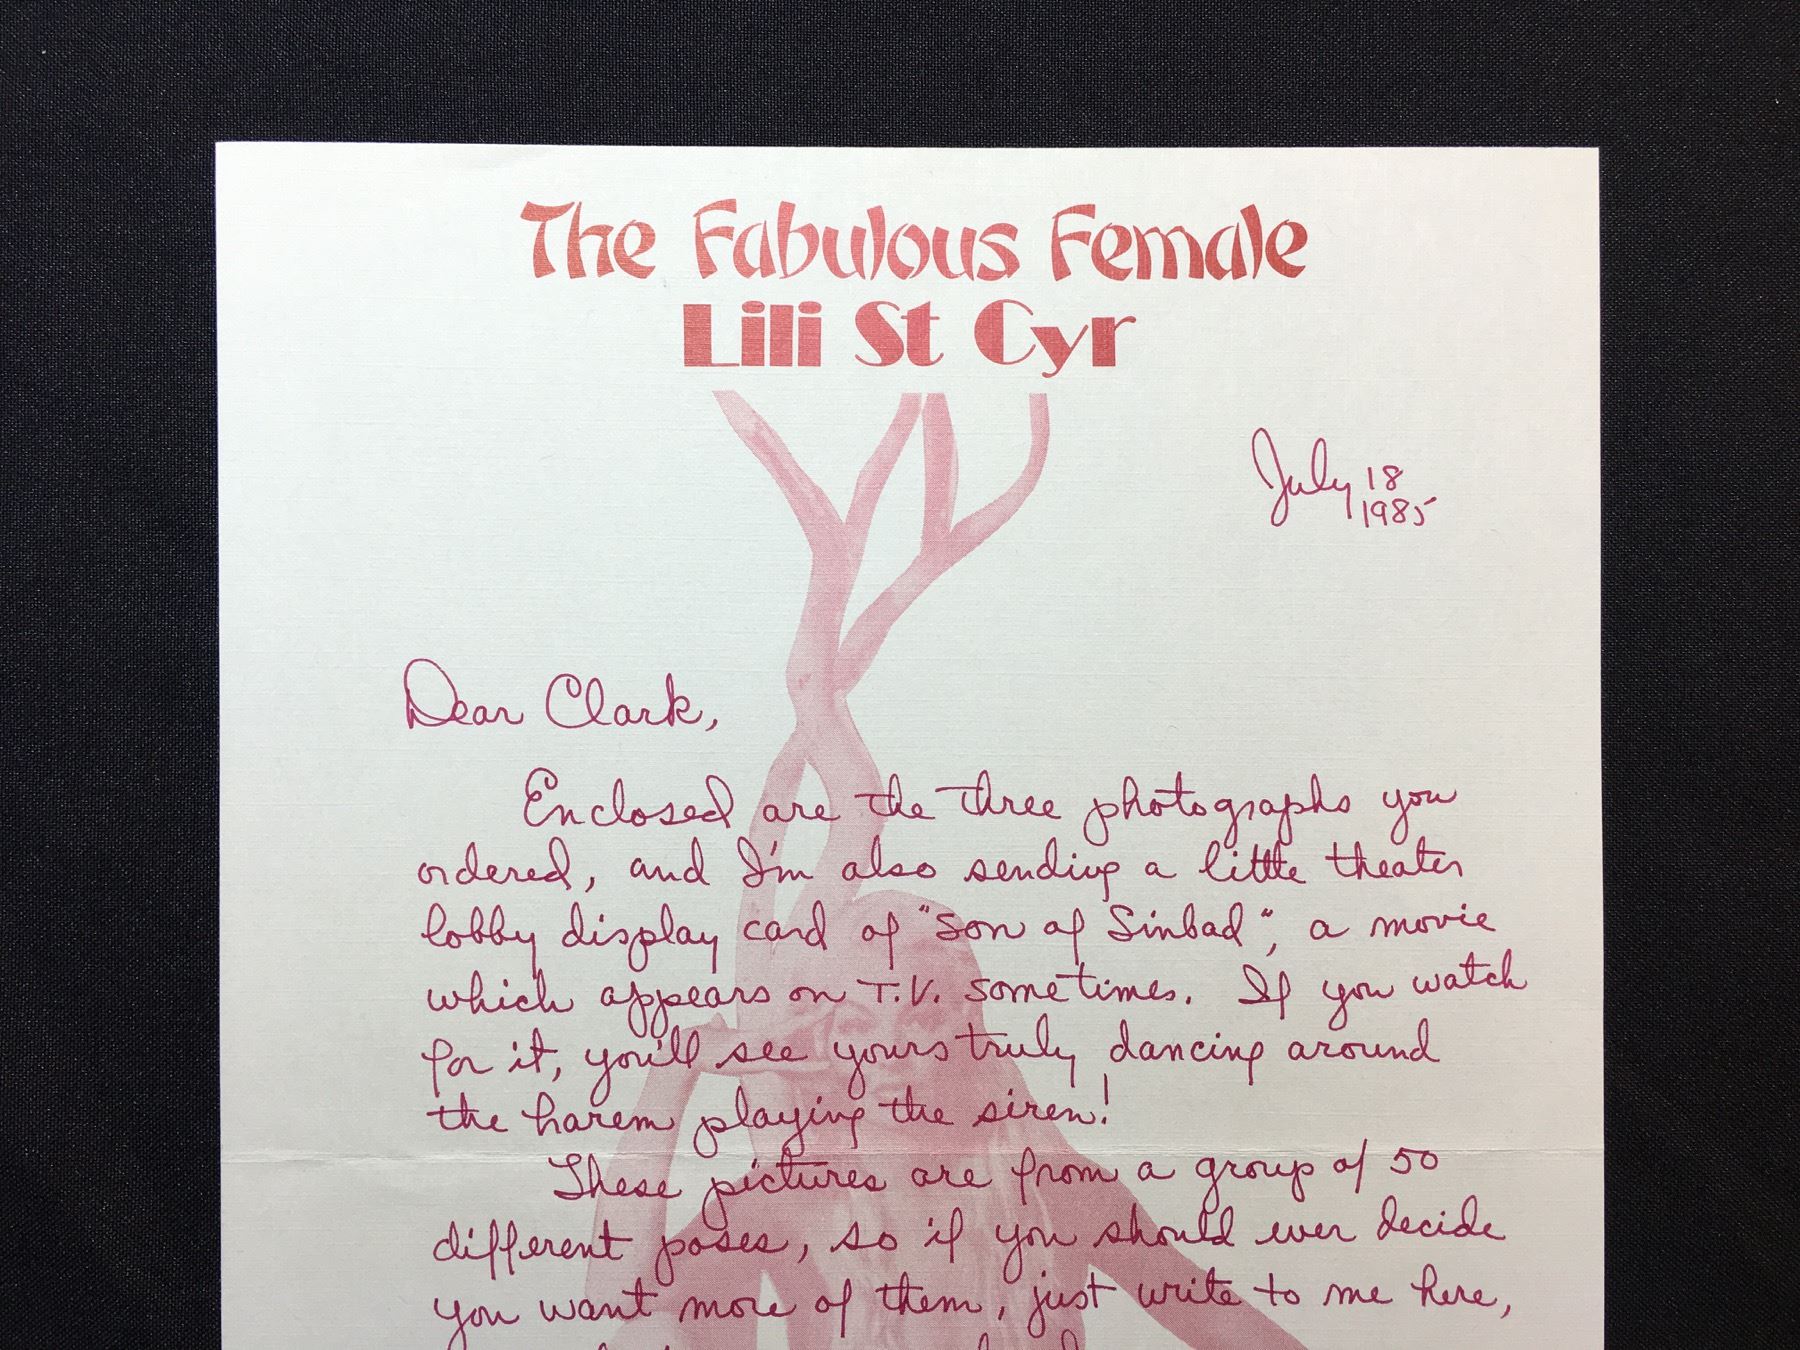 The Fabulous Female
Lili St Cyr
July 18
1985
Dear Clark,
Enclosed are the three photographs you
ordered, and I'm also sending a little theater
lobby display card of "Son of Sinbad", a movie
which appears on T.V. sometimes. If you watch
for it, you'll see yours truly dancing around
the harem playing the siren!
These pictures are from a group of 50
different poses, so if you should ever decide
you want more of them, just write to me here,